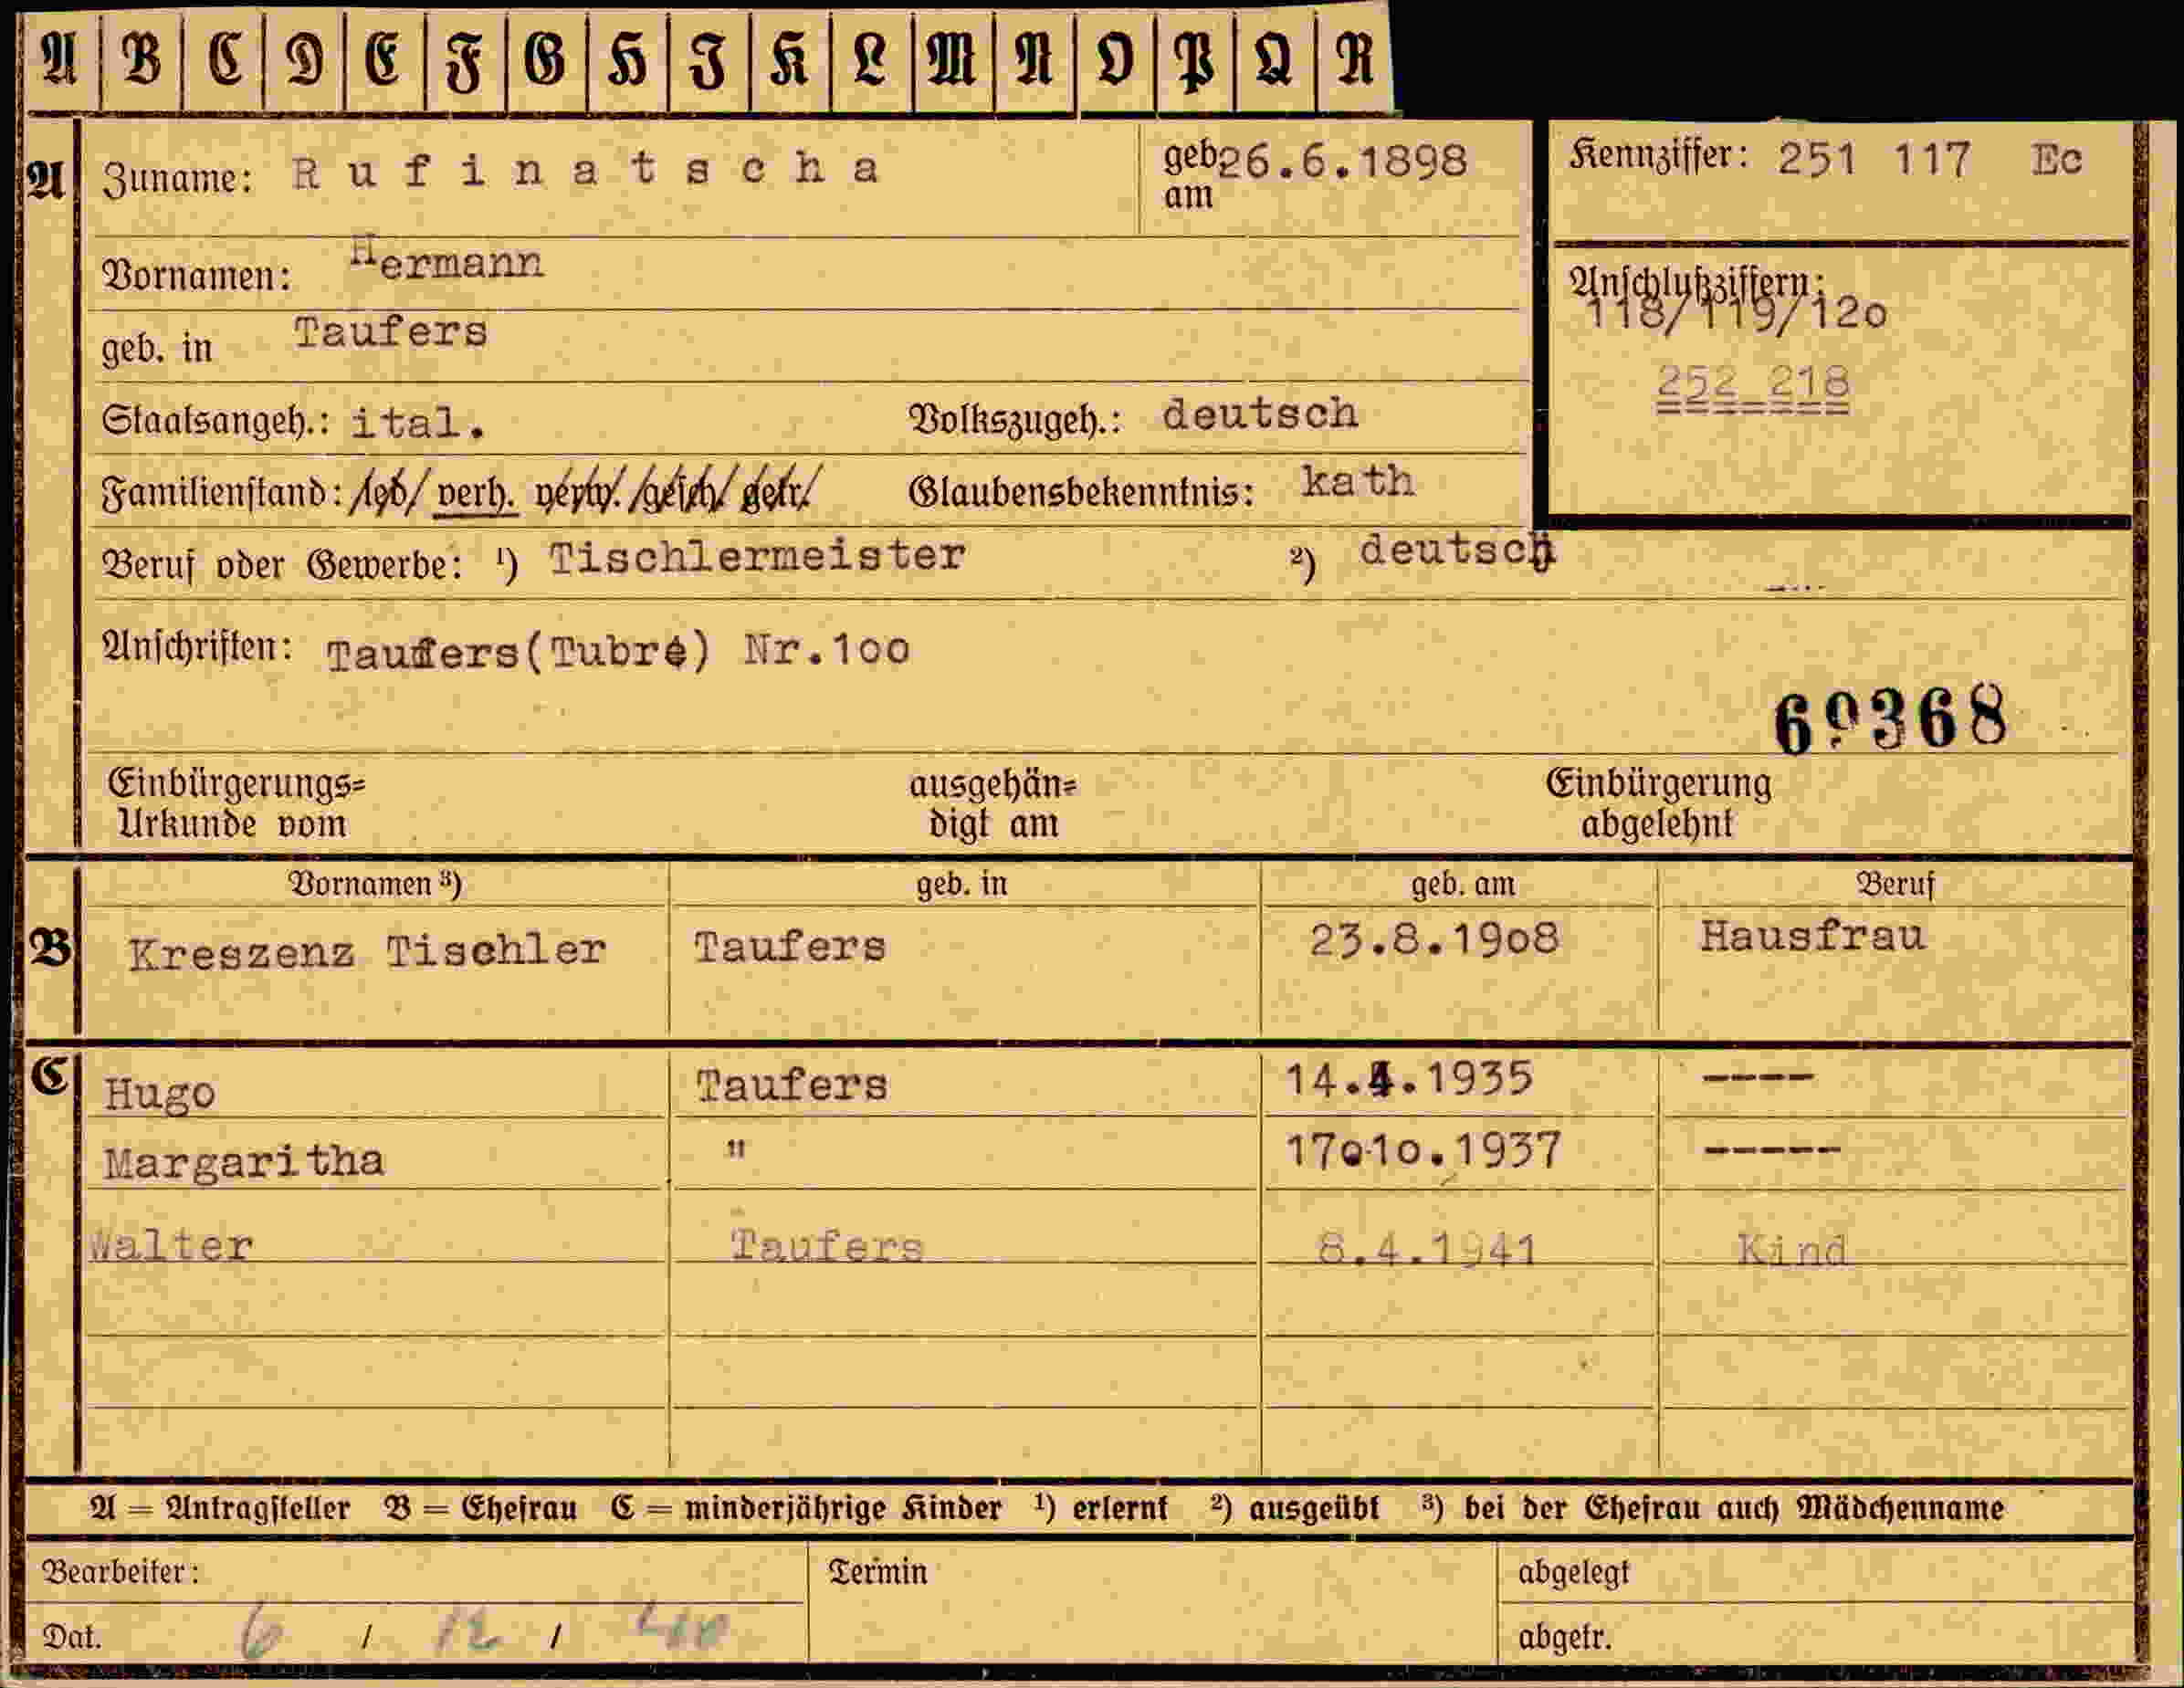 A B C D E F G H J K L M N O P Q R
A Zuname: Rufinatscha geb. am 26.6.1898 Kennziffer: 251 117 Ec
Vornamen: Hermann
Anschlußziffern:
118/119/120
geb. in Taufers
252 218
Staatsangeh.: ital. Volkszugeh.: deutsch
Familienstand: led/ verh. verw. /gesch/ getr/ Glaubensbekenntnis: kath
Beruf oder Gewerbe: ¹) Tischlermeister ²) deutsch
Anschriften: Taufers(Tubre) Nr.100
69368
Einbürgerungs=
Urkunde vom
ausgehän=
digt am
Einbürgerung
abgelehnt
Vornamen ³) geb. in geb. am Beruf
B Kreszenz Tischler Taufers 23.8.1908 Hausfrau
C Hugo Taufers 14.4.1935 ----
Margaritha " 17.10.1937 -----
Walter Taufers 8.4.1941 Kind
A = Antragsteller B = Ehefrau C = minderjährige Kinder ¹) erlernt ²) ausgeübt ³) bei der Ehefrau auch Mädchenname
Bearbeiter: Termin abgelegt
Dat. 6 / 12 / 40 abgetr.